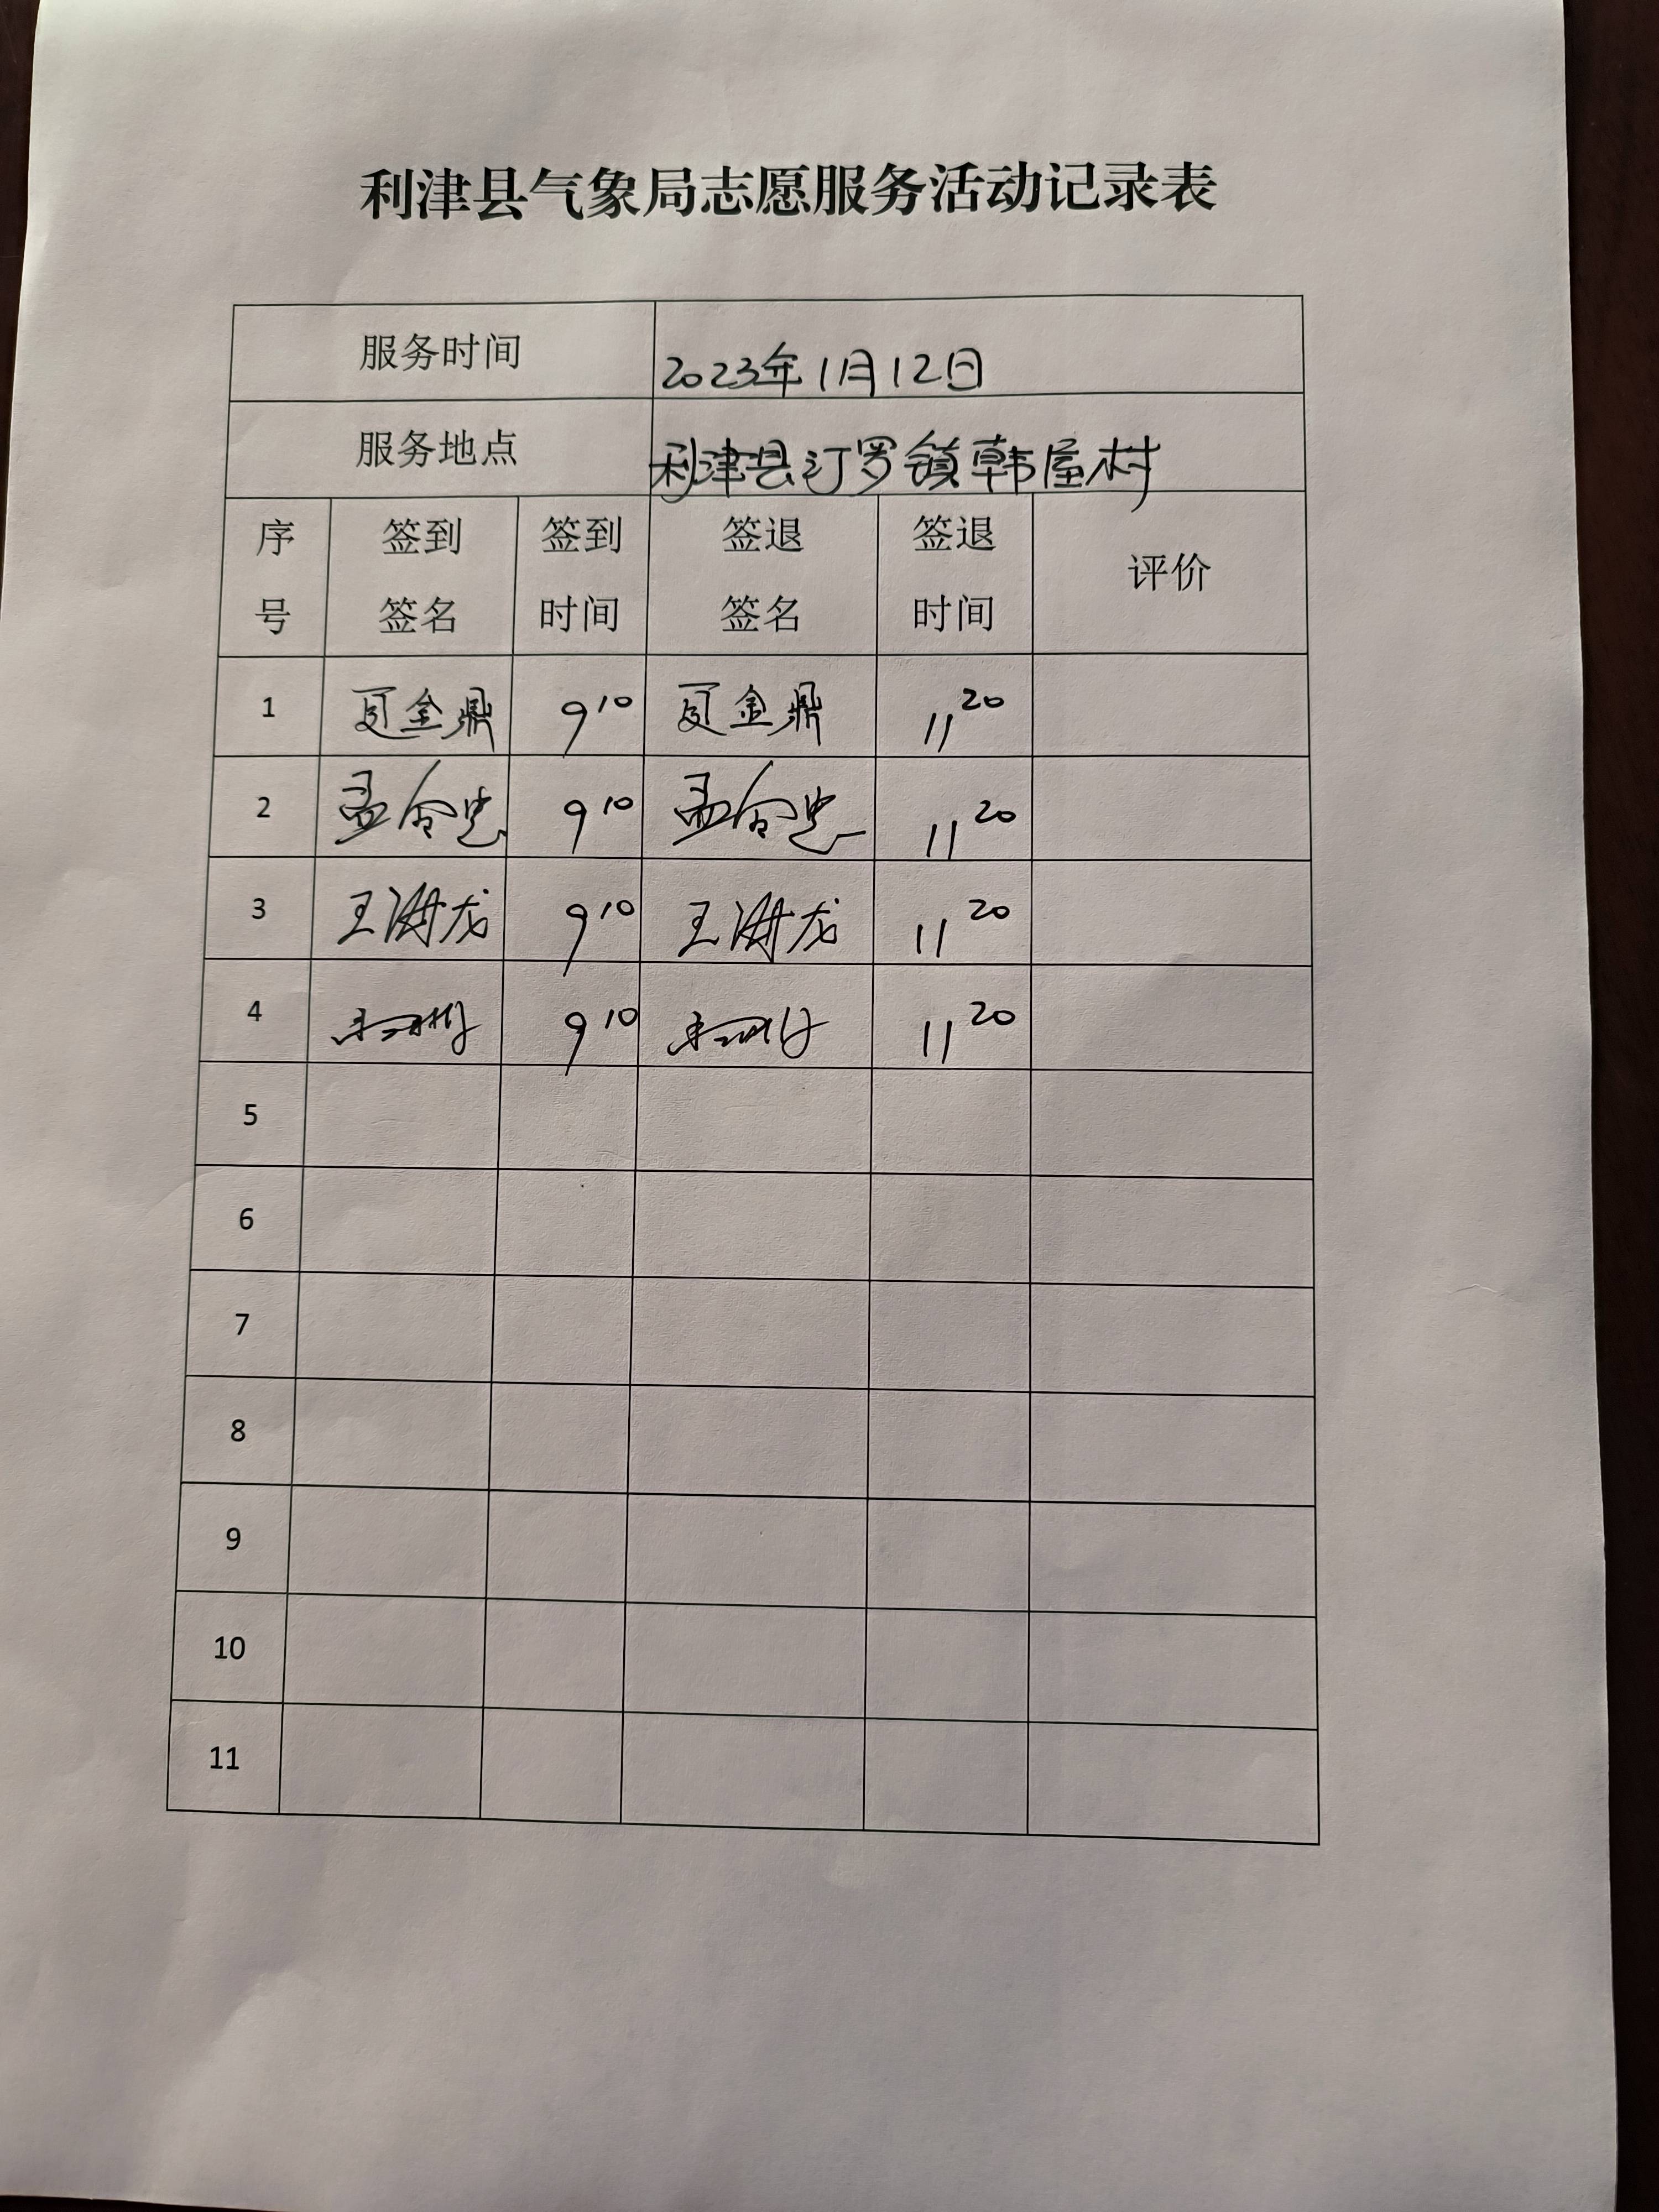 利津县气象局志愿服务活动记录表
服务时间 2023年1月12日
服务地点 利津县汀罗镇韩屋村
序号 签到签名 签到时间 签退签名 签退时间 评价
1 夏金鼎 9 10 夏金鼎 11 20
2 孟令忠 9 10 孟令忠 11 20
3 王 龙 9 10 王 龙 11 20
4 9 10 11 20
5
6
7
8
9
10
11